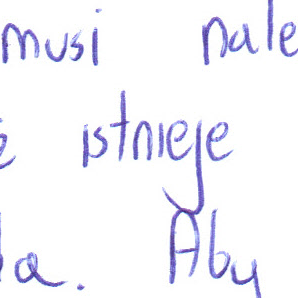 musi nale
istnieje
a. Aby